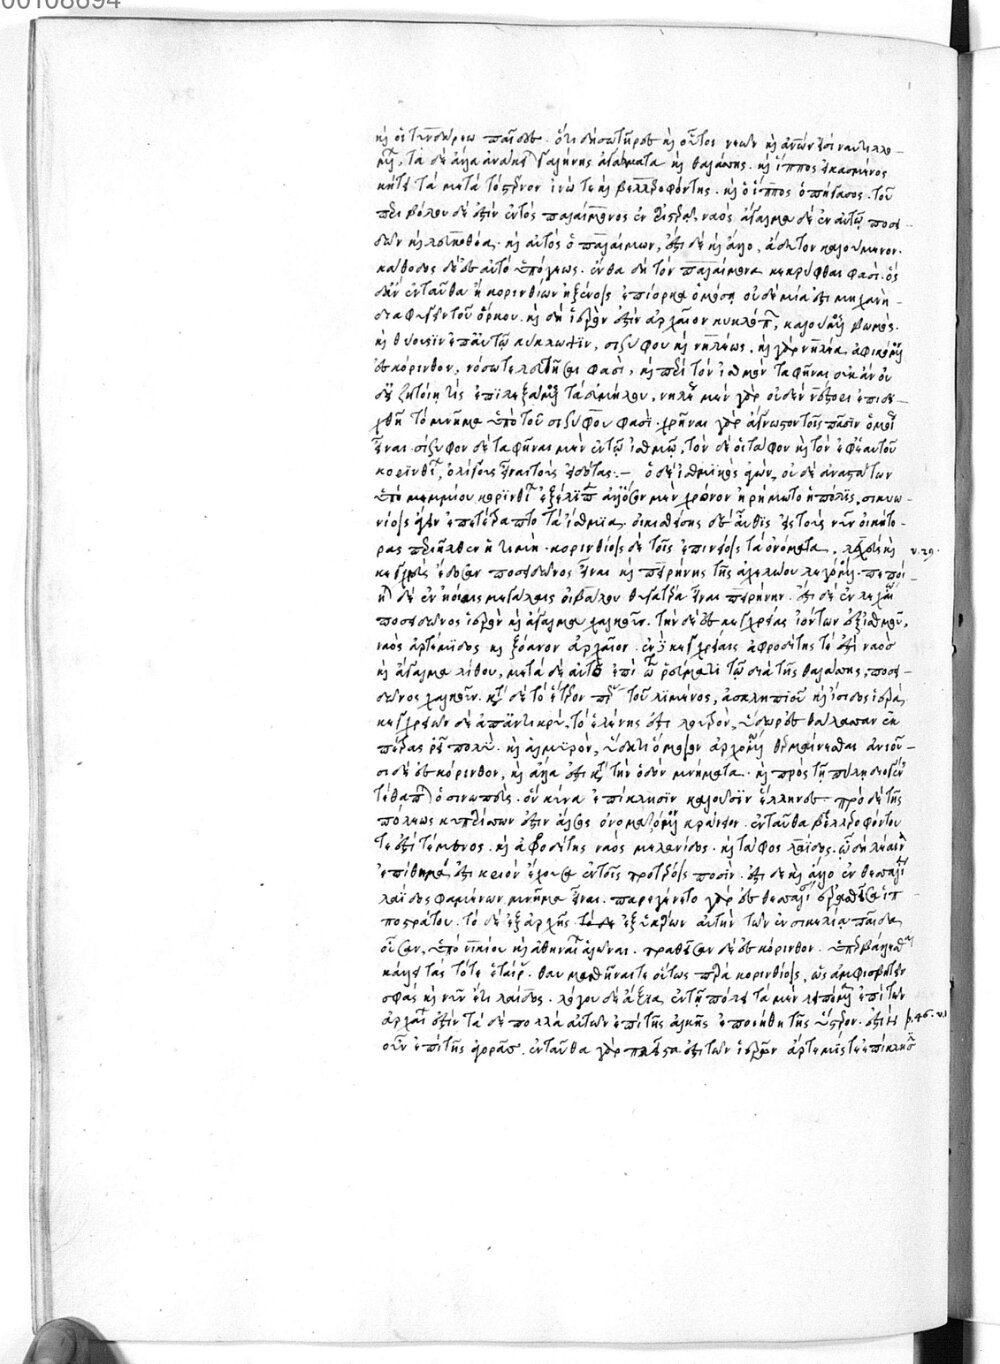 καὶ οἱ τυνδάρεω παῖδες. ὅτι δὴ σωτῆρες καὶ οὗτος νεῶν καὶ ἀνων εἰσὶ ναυτιλλο-
μων, τὰ δὲ ἄλλα ἀνάκειται γαλήνης ἀγάλματα καὶ θαλάσσης. καὶ ἵππος εἰκασμένος
κήτει τὰ μετὰ τὸ στέρνον ἰνώ τε καὶ βελλεροφόντης. καὶ ὁ ἵππος ὁ πήγασος. τοῦ
περιβόλου δέ ἐστιν ἐντὸς παλαίμονος ἐν ἀριστερᾷ, ναὸς ἄγαλμα δὲ ἐν αὐτῷ ποσει-
δῶν καὶ λευκοθέα. καὶ αὐτὸς ὁ παλαίμων, ἔστι δὲ καὶ ἄλλο, ἄδυτον καλούμενον.
κάθοδος δὲ ἐς αὐτὸ ὑπόγεως. ἔνθα δὴ τὸν παλαίμονα κεκρύφθαι φασί. ὃς
δ' ἂν ἐνταῦθα ἢ κορινθίων ἢ ξένος ἐπίορκα ὀμόση οὐδεμία ἐστι μηχανὴ
διαφυγεῖν τοῦ ὅρκου. καὶ δὴ ἱερόν ἐστιν ἀρχαῖον κυκλώπων, καλούμενος βωμός.
καὶ θύουσιν ἐπ' αὐτῷ κύκλωψιν, σισύφου καὶ νηλέως. καὶ γὰρ νηλέα ἀφικόμενον
ἐς κόρινθον, νόσω τελευτῆσαι φασὶ, καὶ περὶ τὸν ἰσθμὸν ταφῆναι οὐκ ἂν οὐ
δὲ ζητοίη τις ἐπιλεξάμενος τὰ εὐμήλου, νηλεῖ μὲν γὰρ οὐδὲν νέστορι ἐπιδει-
χθῆναι τὸ μνῆμα ὑπὸ τοῦ σισύφου φασὶ. χρῆναι γὰρ ἄγνωστον τοῖς πᾶσιν ὁμοίως
εἶναι. σίσυφον δὲ ταφῆναι μὲν ἐν τῷ ἰσθμῷ, τὸν δὲ οἱ τάφον καὶ τὸν ἐφ' ἑαυτοῦ
κορινθίων, ὀλίγους εἶναι τοὺς εἰδότας:— ὁ δὲ ἰσθμικὸς ἀγὼν, οὐδὲ ἀναστάντων
ὑπὸ μεμμίου κορινθίων ἐξέλιπεν ἀλλ' ὅσον μὲν χρόνον ἠρήμωτο ἡ πόλις, σικυω-
νίοις ἄγειν ἐπετέτραπτο τὰ ἴσθμια. οἰκισθείσης δὲ αὖθις εἰς τοὺς νῦν οἰκήτο-
ρας περιῆλθεν ἡ τιμή. κορινθίοις δὲ τοῖς ἐπινείοις τὰ ὀνόματα, λέχης καὶ ν. 29.
κεγχρίας ἔδοσαν ποσειδῶνος εἶναι καὶ πειρήνης τῆς ἀχελώου λεγόμενοι. πεποί-
ηται δὲ ἐν ἠοίαις μεγάλαις οἰβάλου θυγατέρα εἶναι πειρήνην. ἔστι δὲ ἐν λεχαίῳ
ποσειδῶνος ἱερὸν καὶ ἄγαλμα χαλκοῦν. τὴν δὲ ἐς κεγχρέας ἰόντων ἐξ ἰσθμοῦ,
ναὸς ἀρτέμιδος καὶ ξόανον ἀρχαῖον. ἐν δὲ κεγχρέαις ἀφροδίτης τέ ἐστι ναὸς
καὶ ἄγαλμα λίθου, μετὰ δὲ αὐτὸ ἐπὶ τῷ ῥεύματι τῷ διὰ τῆς θαλάσσης, ποσει-
δῶνος χαλκοῦν. κατὰ δὲ τὸ ἕτερον πέρας τοῦ λιμένος, ἀσκληπιοῦ καὶ ἴσιδος ἱερά,
κεγχρεῶν δὲ ἀπαντικρὺ, τὸ ἑλένης ἐστὶ λουτρόν, ὕδωρ ἐς θάλασσαν ἐκ
πέτρας ῥεῖ πολὺ. καὶ ἁλμυρὸν, ὕδατι ὅμοιον ἀρχομένῳ θερμαίνεσθαι ἀνιοῦ-
σι δὲ ἐς κόρινθον, καὶ ἄλλα ἐστὶ κατὰ τὴν ὁδὸν μνήματα. καὶ πρὸς τῇ πύλῃ διογένης
τέθαπται ὁ σινωπεὺς. ὃν κύνα ἐπίκλησιν καλοῦσιν ἕλληνες πρὸ δὲ τῆς
πόλεως κυπαρίσσων ἐστὶν ἄλσος ὀνομαζόμενον κράνιον. ἐνταῦθα βελλεροφόντου
τέ ἐστι τέμενος. καὶ ἀφροδίτης ναὸς μελανίδος. καὶ τάφος λαΐδος. ᾧ δὴ λέαινα
ἐπίθημα ἐστι κριὸν ἔχουσα ἐν τοῖς προτέροις ποσὶν. ἔστι δὲ καὶ ἄλλο ἐν θεσσαλίᾳ
λαΐδος φαμένων μνῆμα εἶναι. παρεγένετο γὰρ ἐς θεσσαλίαν ἐρασθεῖσα ἱπ-
ποστράτου. τὸ δὲ ἐξ ἀρχῆς ἐξ ὑκάρων αὐτὴν τῶν ἐν σικελία παῖδα
οὖσαν, ὑπὸ νικίου καὶ ἀθηναίων ἁλῶναι. πραθεῖσαν δὲ ἐς κόρινθον. ὑπερβαλέσθαι
κάλλει τὰς τότε ἑταίρας. θαυμασθῆναί τε οὕτως παρὰ κορινθίοις, ὡς ἀμφισβητεῖν
σφᾶς καὶ νῦν ἔτι λαΐδος. λόγου δὲ ἄξια ἐν τῇ πόλει τὰ μὲν λειπόμενα ἔτι τῶν
ἀρχαίων ἐστὶν τὰ δὲ πολλὰ αὐτῶν ἐπὶ τῆς ἀκμῆς ἐποιήθη τῆς ὕστερον. ἔστιν p. 46. v. 1
οὖν ἐπὶ τῆς ἀγορᾶς. ἐνταῦθα γὰρ πλεῖστά ἐστι τῶν ἱερῶν ἄρτεμίς τε ἐπίκλησιν